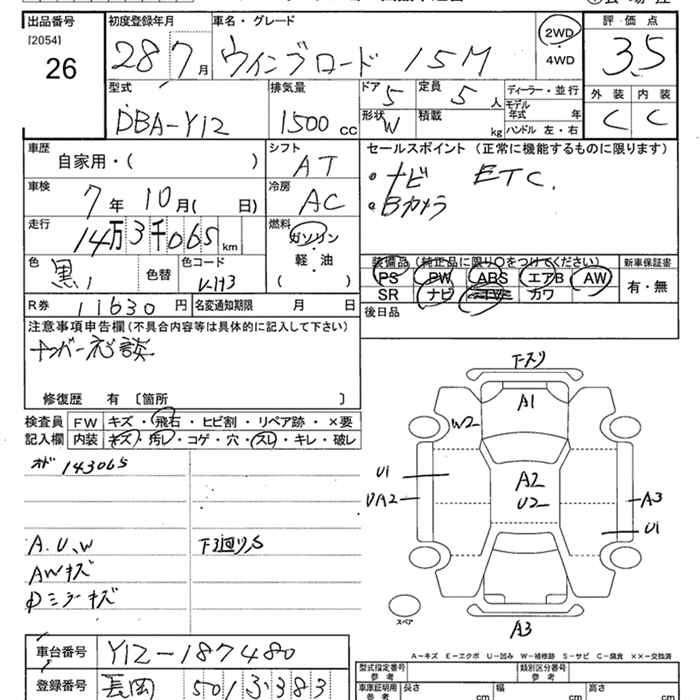 出品番号 初度登録年月 車名・グレード 評価点
[2054]
26
28 7月 ウイングロード 15M 2WD・4WD 3.5
型式 排気量 ドア 5 定員 5人 ディーラー・並行 外装 内装
DBA-Y12 1500cc 形状 W 積載 kg モデル年式 年 ハンドル 左・右 C C
車歴 シフト セールスポイント (正常に機能するものに限ります)
自家用・( ) AT ・ナビ ETC.
車検 7年 10月( 日) 冷房 AC ・Bカメラ
走行 燃料
14万3千065km ガソリン・軽・油 ( )
装備品 (純正品に限り○をつけてください) 新車保証書
色 黒 色替 色コード PS PW ABS エアB AW 有・無
SR ナビ TV カワ
R券 11630円 名変通知期限 月 日 後日品
注意事項申告欄(不具合内容等は具体的に記入して下さい)
ナンバー応談
修復歴 有 〔箇所 〕
検査員 FW キズ・飛石・ヒビ割・リペア跡・×要
記入欄 内装 キズ・汚レ・コゲ・穴・スレ・キレ・破レ
143065
A.U.W 下廻りS
AWキズ
ミラーキズ
下スリ
A1
W2
U1 A2
UA2 U2 A3
U1
スペア
A3
A-キズ E-エクボ U-凹み W-補修跡 S-サビ C-腐食 ××-交換済
車台番号 Y12-187480 型式指定番号 参考 類別区分番号 参考
登録番号 長岡 501 ふ 383 車庫証明用 参考 長さ cm 幅 cm 高さ cm